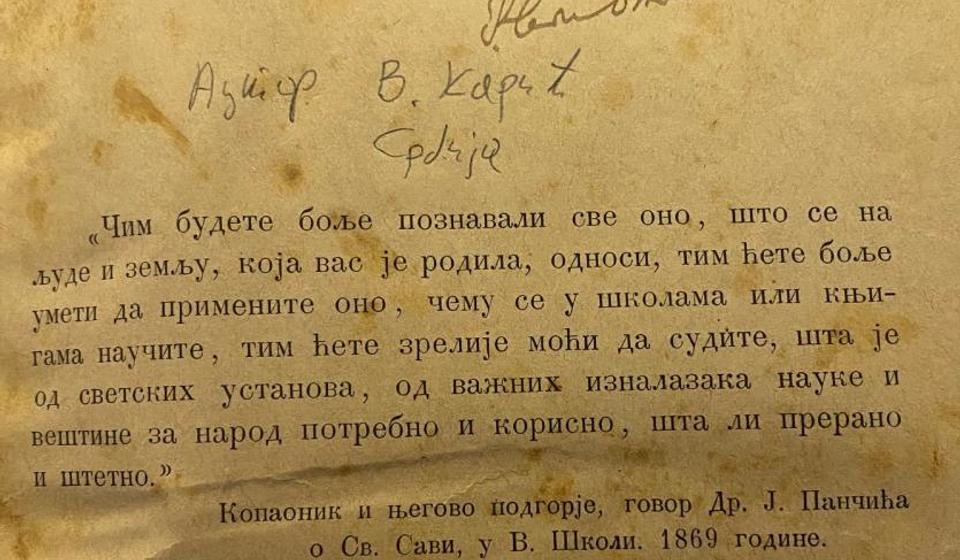 Аутор В. Карић
Србија
„Чим будете боље познавали све оно, што се на
људе и земљу, која вас је родила, односи, тим ћете боље
умети да примените оно, чему се у школама или књи-
гама научите, тим ћете зрелије моћи да судите, шта је
од светских установа, од важних изналазака науке и
вештине за народ потребно и корисно, шта ли прерано
и штетно.”
Копаоник и његово подгорје, говор Др. Ј. Панчића
о Св. Сави, у В. Школи. 1869 године.